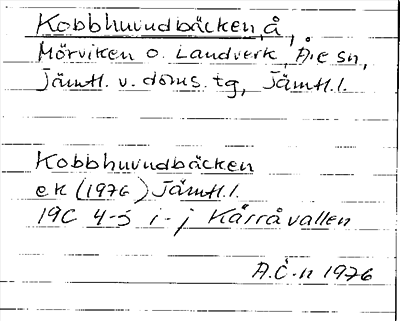 Kobbhuvudbäcken, å,
Mörviken o. Landverk, Åre sn,
Jämtl. v. doms. tg, Jämtl. l.
Kobbhuvudbäcken
ek (1976) Jämtl. l.
19C 4-5 i-j Kårråvallen
A.C-n 1976